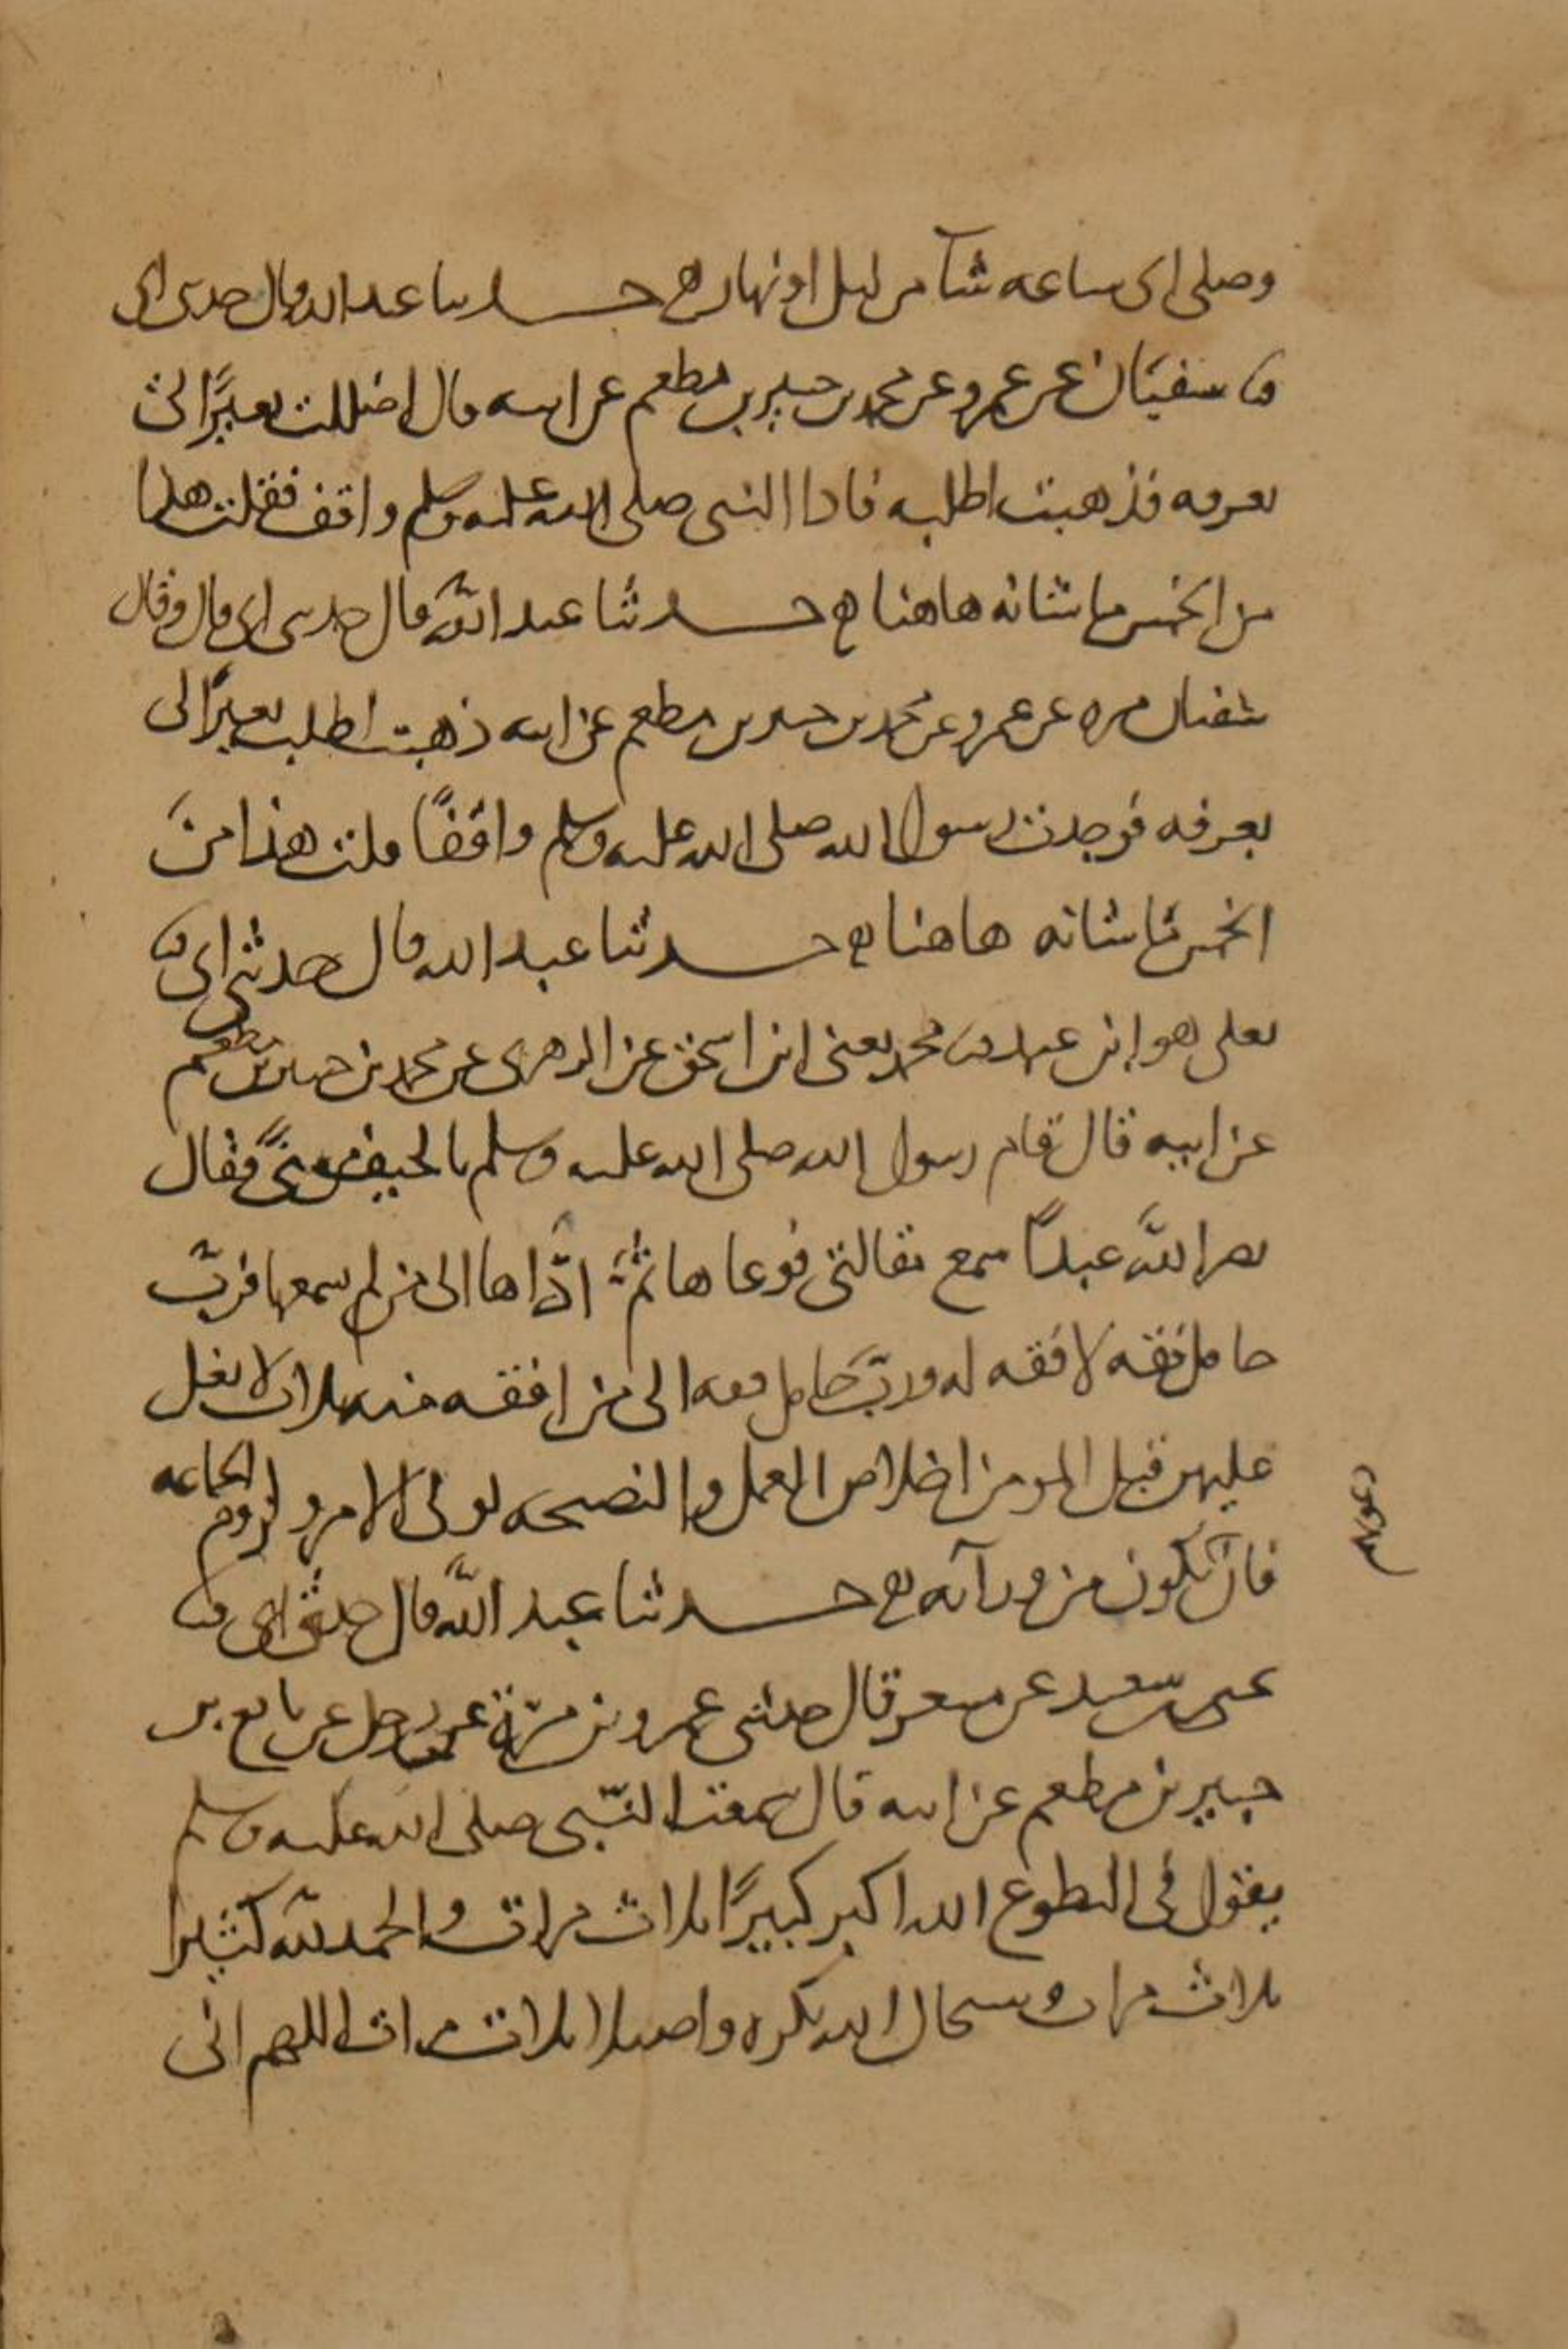 وصلى اى ساعه شآ من ليل او نهار ه حدثنا عبد الله قال حدثنى ابى
ثنا سفيان عن عمرو عن محمد بن جبير بن مطعم عن ابيه قال اضللت بعيرًا لى
بعرفه فذهبت اطلبه فاذا النبى صلى الله عليه وسلم واقف فقلت هذا
من الحمس ما شانه هاهنا ه حدثنا عبد الله قال حدثنى ابى قال وقال
سفيان مره عن عمرو عن محمد بن جبير بن مطعم عن ابيه ذهبت اطلب بعيرًا لى
بعرفه فوجدت رسول الله صلى الله عليه وسلم واقفًا قلت هذا من
الحمس ما شانه هاهنا ه حدثنا عبد الله قال حدثنى ابى ثنا
يعلى هو ابن عبيد ثنا محمد يعنى ابن اسحق عن الزهرى عن محمد بن جبير بن مطعم
عن ابيه قال قام رسول الله صلى الله عليه وسلم بالخيف من منىً فقال
نضر الله عبدًا سمع مقالتى فوعاها ثمّ ادّاها الى من لم يسمعها فربّ
حامل فقه لا فقه له وربّ حامل فقه الى من افقه منه ثلاث لا يغل
عليهن قلب المومن اخلاص العمل والنصيحه لولى الامر ولزوم الجماعه
فان تكون من ورآئه ه حدثنا عبد الله قال حدثنى ابى ثنا
يحيى بن سعيد عن مسعر قال حدثنى عمرو بن مرّة عن رجل عن نافع بن
جبير بن مطعم عن ابيه قال سمعت النبى صلى الله عليه وسلم
يقول فى التطوع الله اكبر كبيرًا ثلاث مرات والحمد لله كثيرا
ثلاث مرات وسبحان الله بكره واصيلا ثلاث مرات اللهم انى